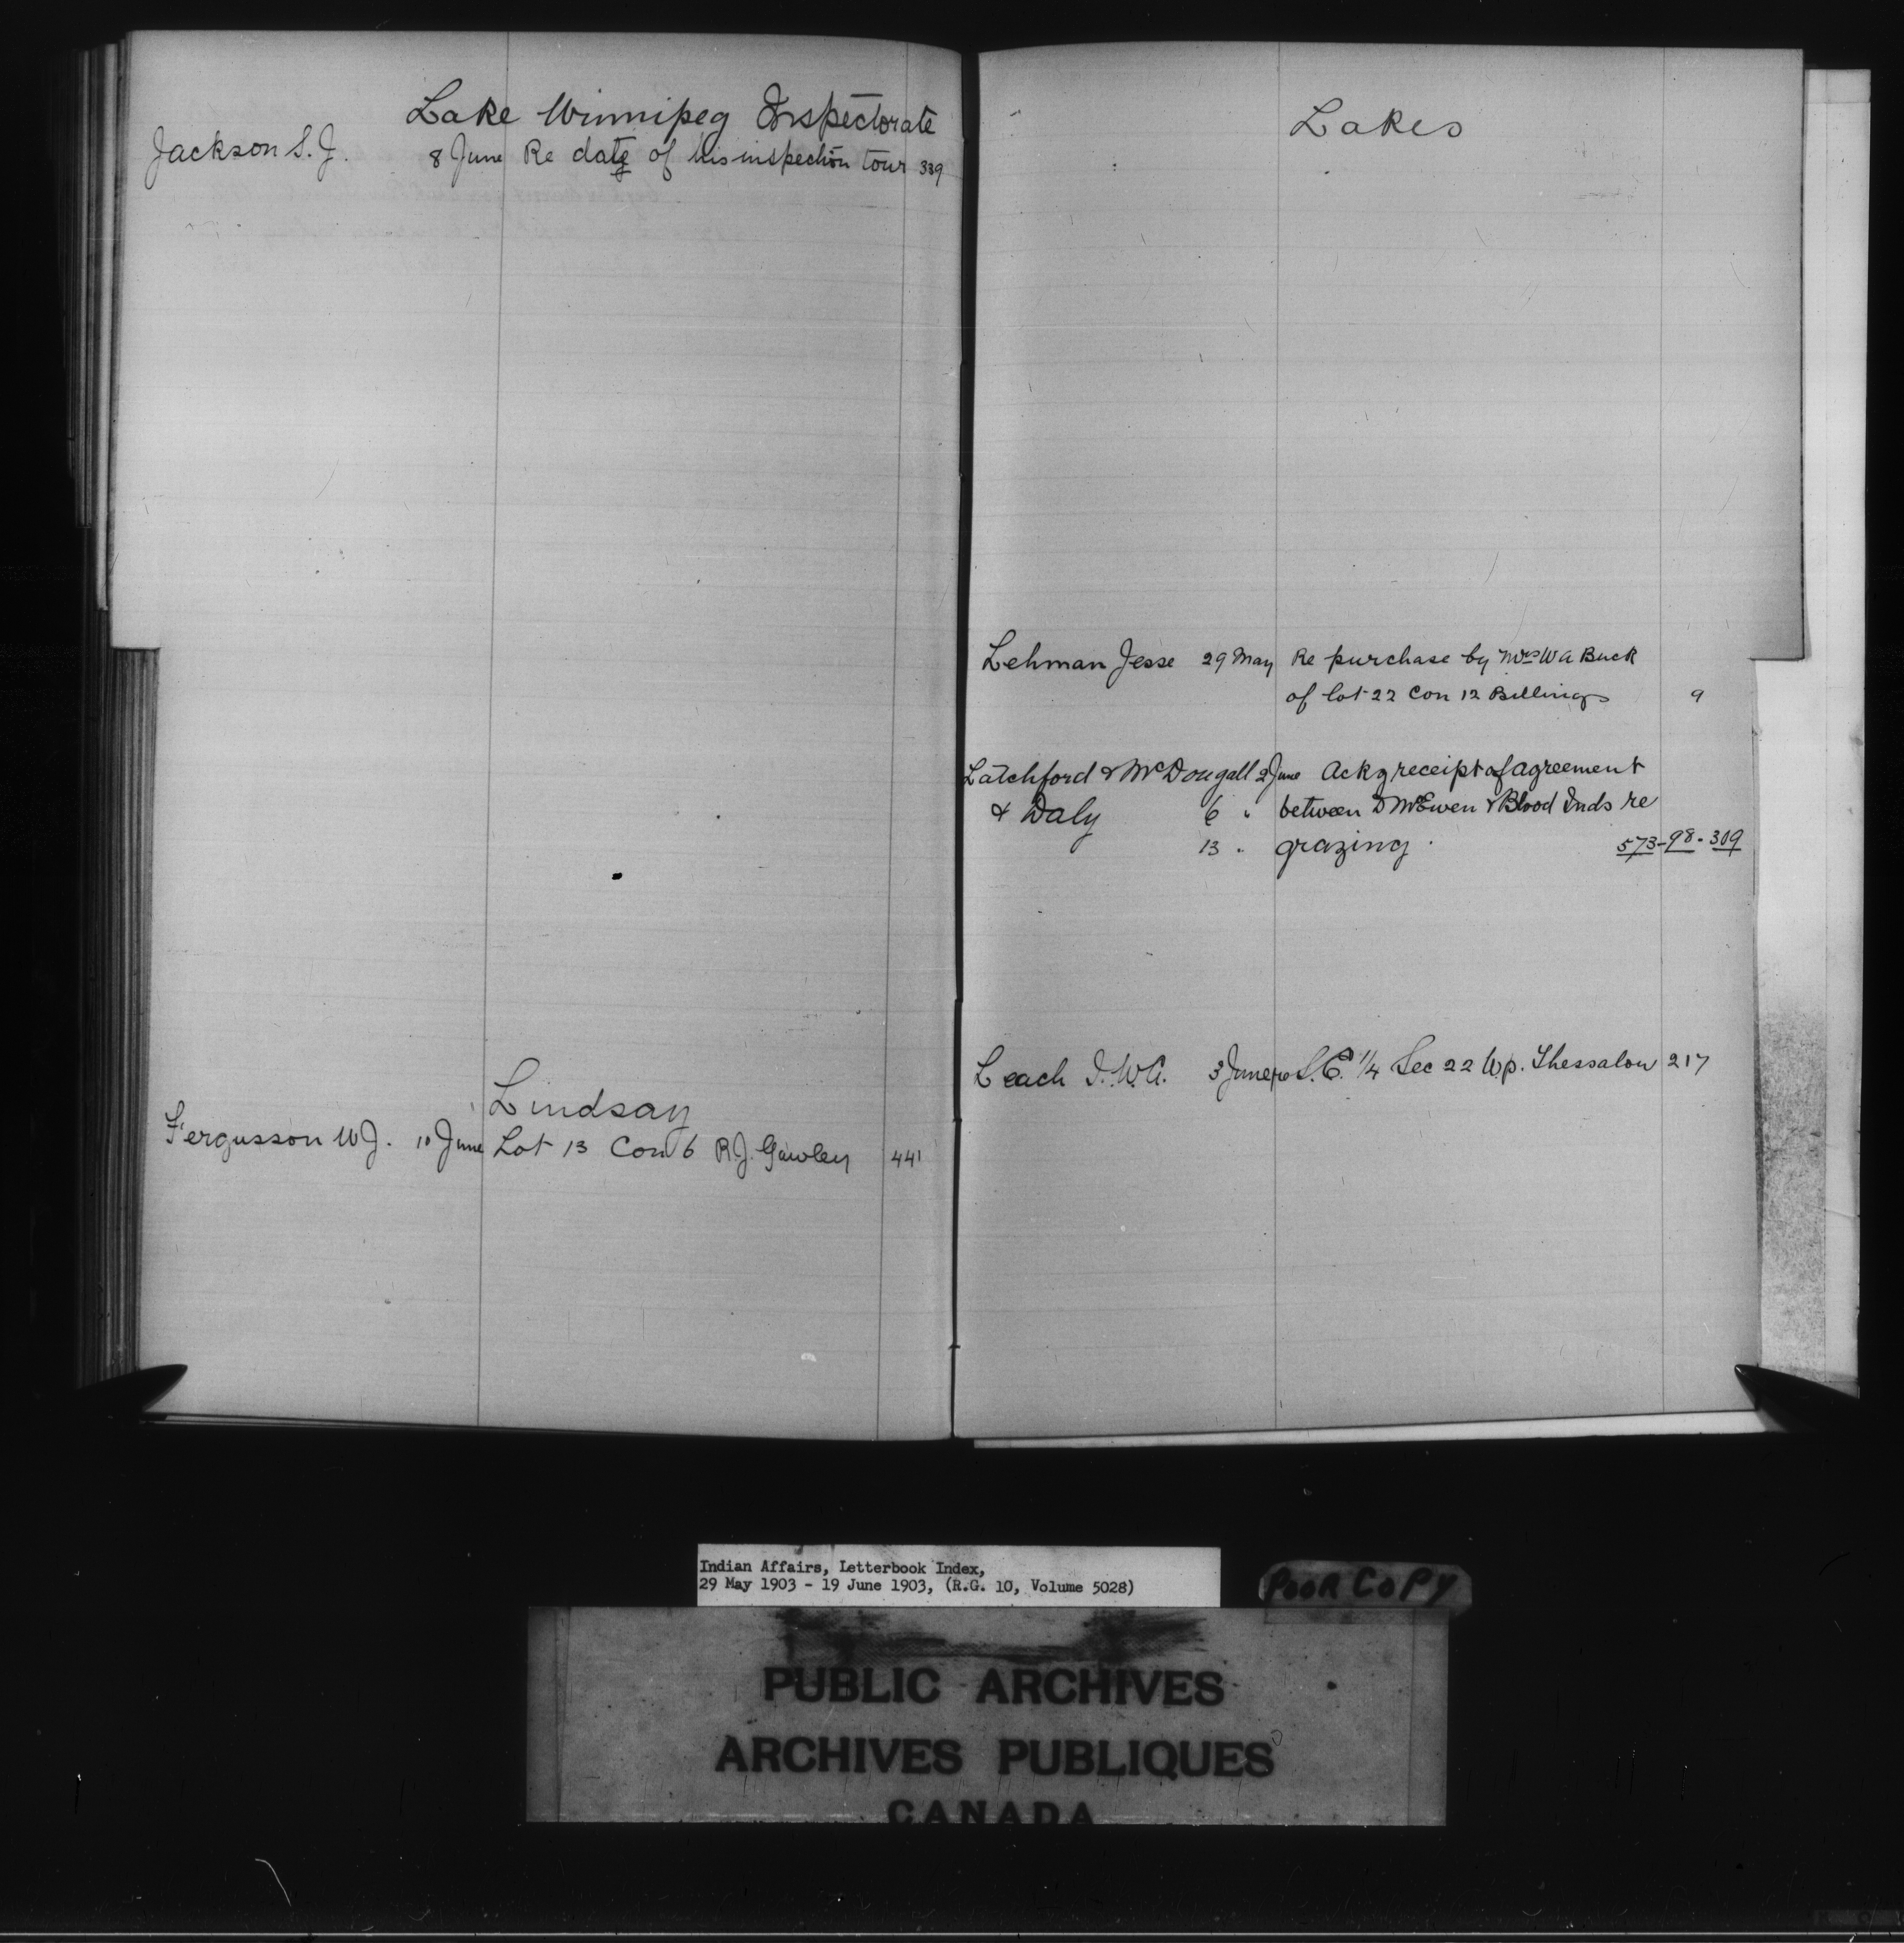 Lake Winnipeg Inspectorate
Jackson S. J. 8 June Re date of his inspection tour 339
Lindsay
Fergusson W J. 10 June Lot 13 Con 6 R. J. Gawley 441
Lakes
Lehman Jesse 29 May Re purchase by Mrs W A Buck
of lot 22 Con 12 Billings 9
Latchford & McDougall 2 June Ackg receipt of agreement
& Daly 6 " between D McEwen & Blood Inds re
13 " grazing. 573-98-309
Leach I. W. A. 3 June re S. E. 1/4 Sec 22 Tp. Thessalon 217
Indian Affairs, Letterbook Index,
29 May 1903 - 19 June 1903, (R.G. 10, Volume 5028)
POOR COPY
PUBLIC ARCHIVES
ARCHIVES PUBLIQUES
CANADA